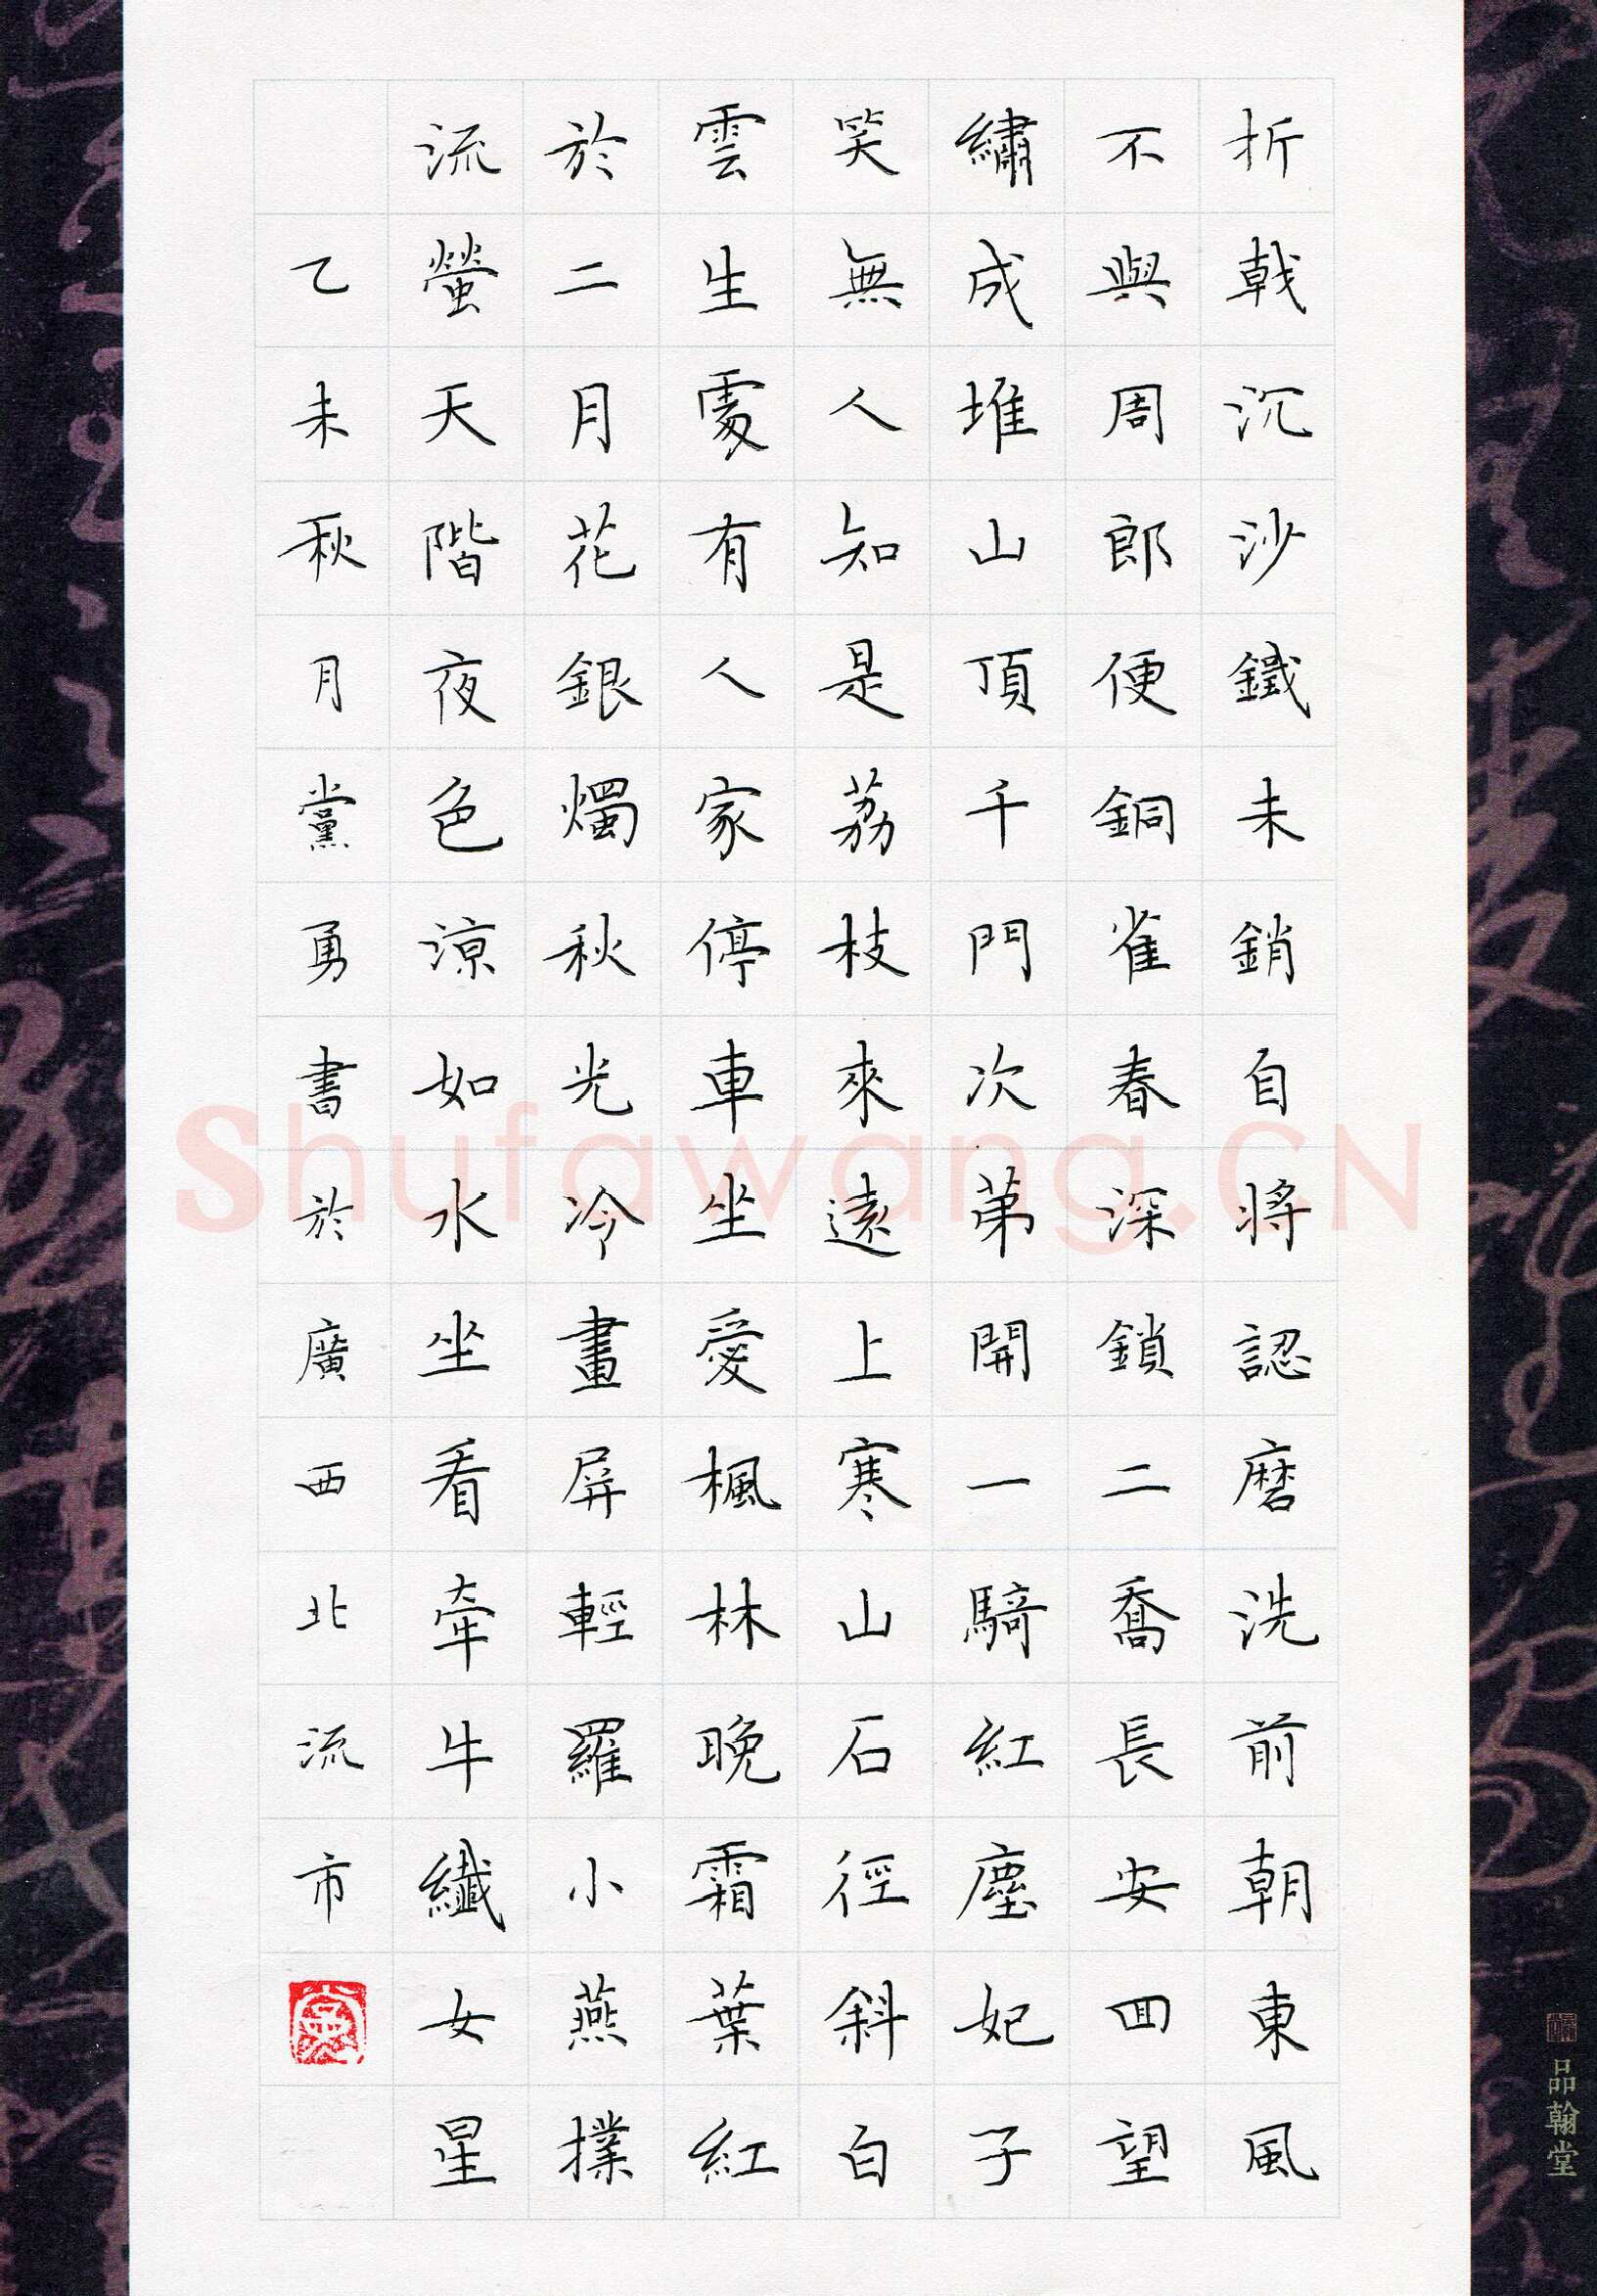 折戟沉沙鐵未銷自將認磨洗前朝東風
不與周郎便銅雀春深鎖二喬長安回望
繡成堆山頂千門次苐開一騎紅塵妃子
笑無人知是荔枝來遠上寒山石徑斜白
雲生處有人家停車坐愛楓林晚霜葉紅
於二月花銀燭秋光冷畫屏輕羅小燕撲
流螢天階夜色涼如水坐看牽牛纖女星
乙未秋月黨勇書於廣西北流市
品翰堂
Shufawang.CN